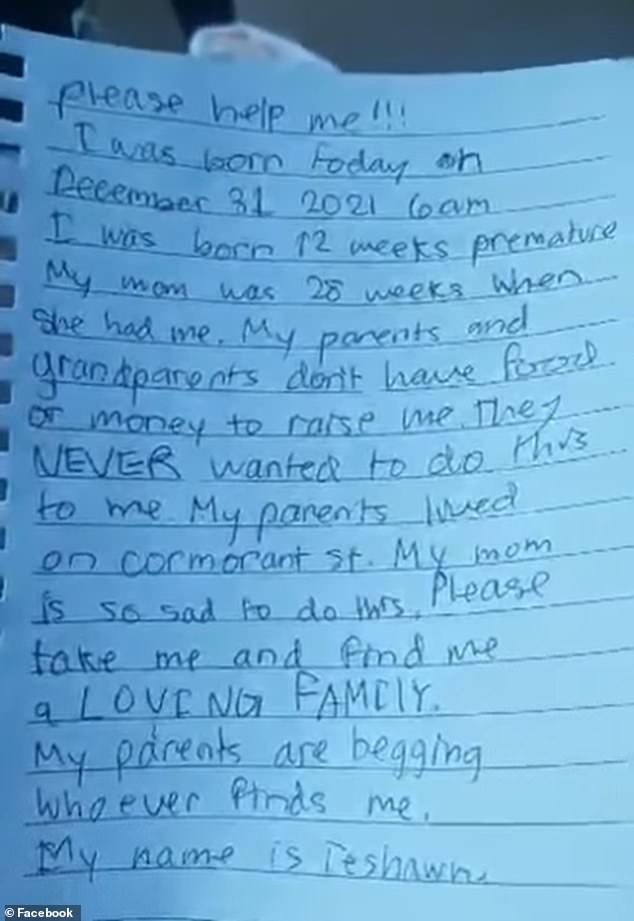 please help me!!!
I was born today on
December 31 2021 6am
I was born 12 weeks premature
My mom was 28 weeks when
she had me. My parents and
grandparents don't have food
or money to raise me. They
NEVER wanted to do this
to me. My parents lived
on cormorant st. My mom
is so sad to do this. Please
take me and find me
a LOVING FAMILY.
My parents are begging
whoever finds me.
My name is Teshawn.
© Facebook